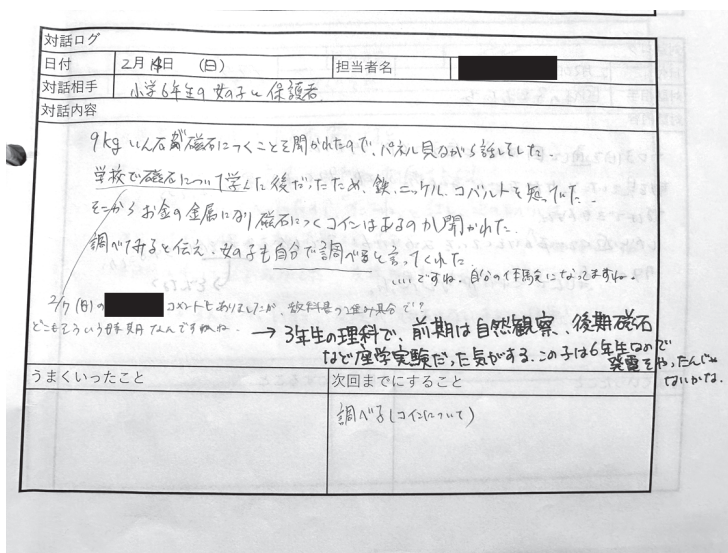 対話ログ
日付 2月14日 (日) 担当者名
対話相手 小学6年生の女の子と保護者
対話内容
9kgいん石が磁石につくことを聞かれたので、パネル見ながら話をした
学校で磁石について学んだ後だったため、鉄、ニッケル、コバルトを知っていた。
そこからお金の金属になり磁石につくコインはあるのか聞かれた。
調べてみると伝え、女の子も自分で調べると言ってくれた。
いいですね。自分の体験になってますね。
2/7(日)の コメントにもありましたが、教科書の進み具合で!?
どこもそういう時期なんですかね。
→3年生の理科で、前期は自然観察、後期磁石
など座学実験だった気がする。この子は6年生なので
発電をやったんじゃ
ないかな。
うまくいったこと 次回までにすること
調べる(コインについて)